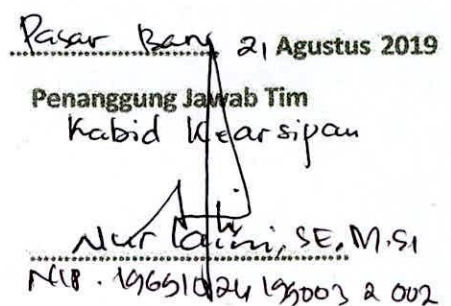 Pasar Baru 21 Agustus 2019
Penanggung Jawab Tim
Kabid Kearsipan
Nur Laini, SE, M.Si
NIP. 19651024 199003 2 002